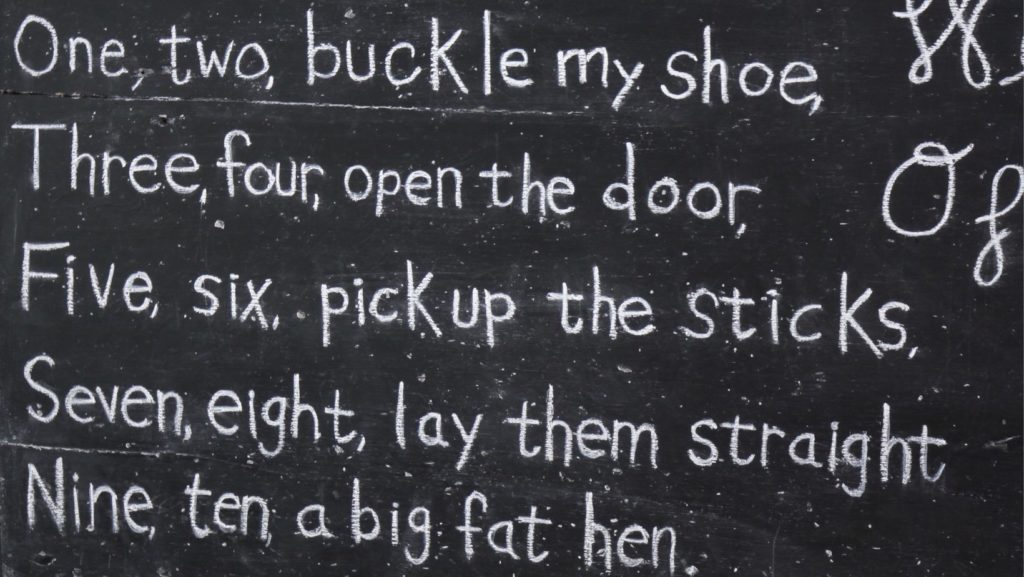 One, two, buckle my shoe,
Three, four, open the door,
Five, six, pick up the sticks,
Seven, eight, lay them straight
Nine, ten, a big fat hen.
Of